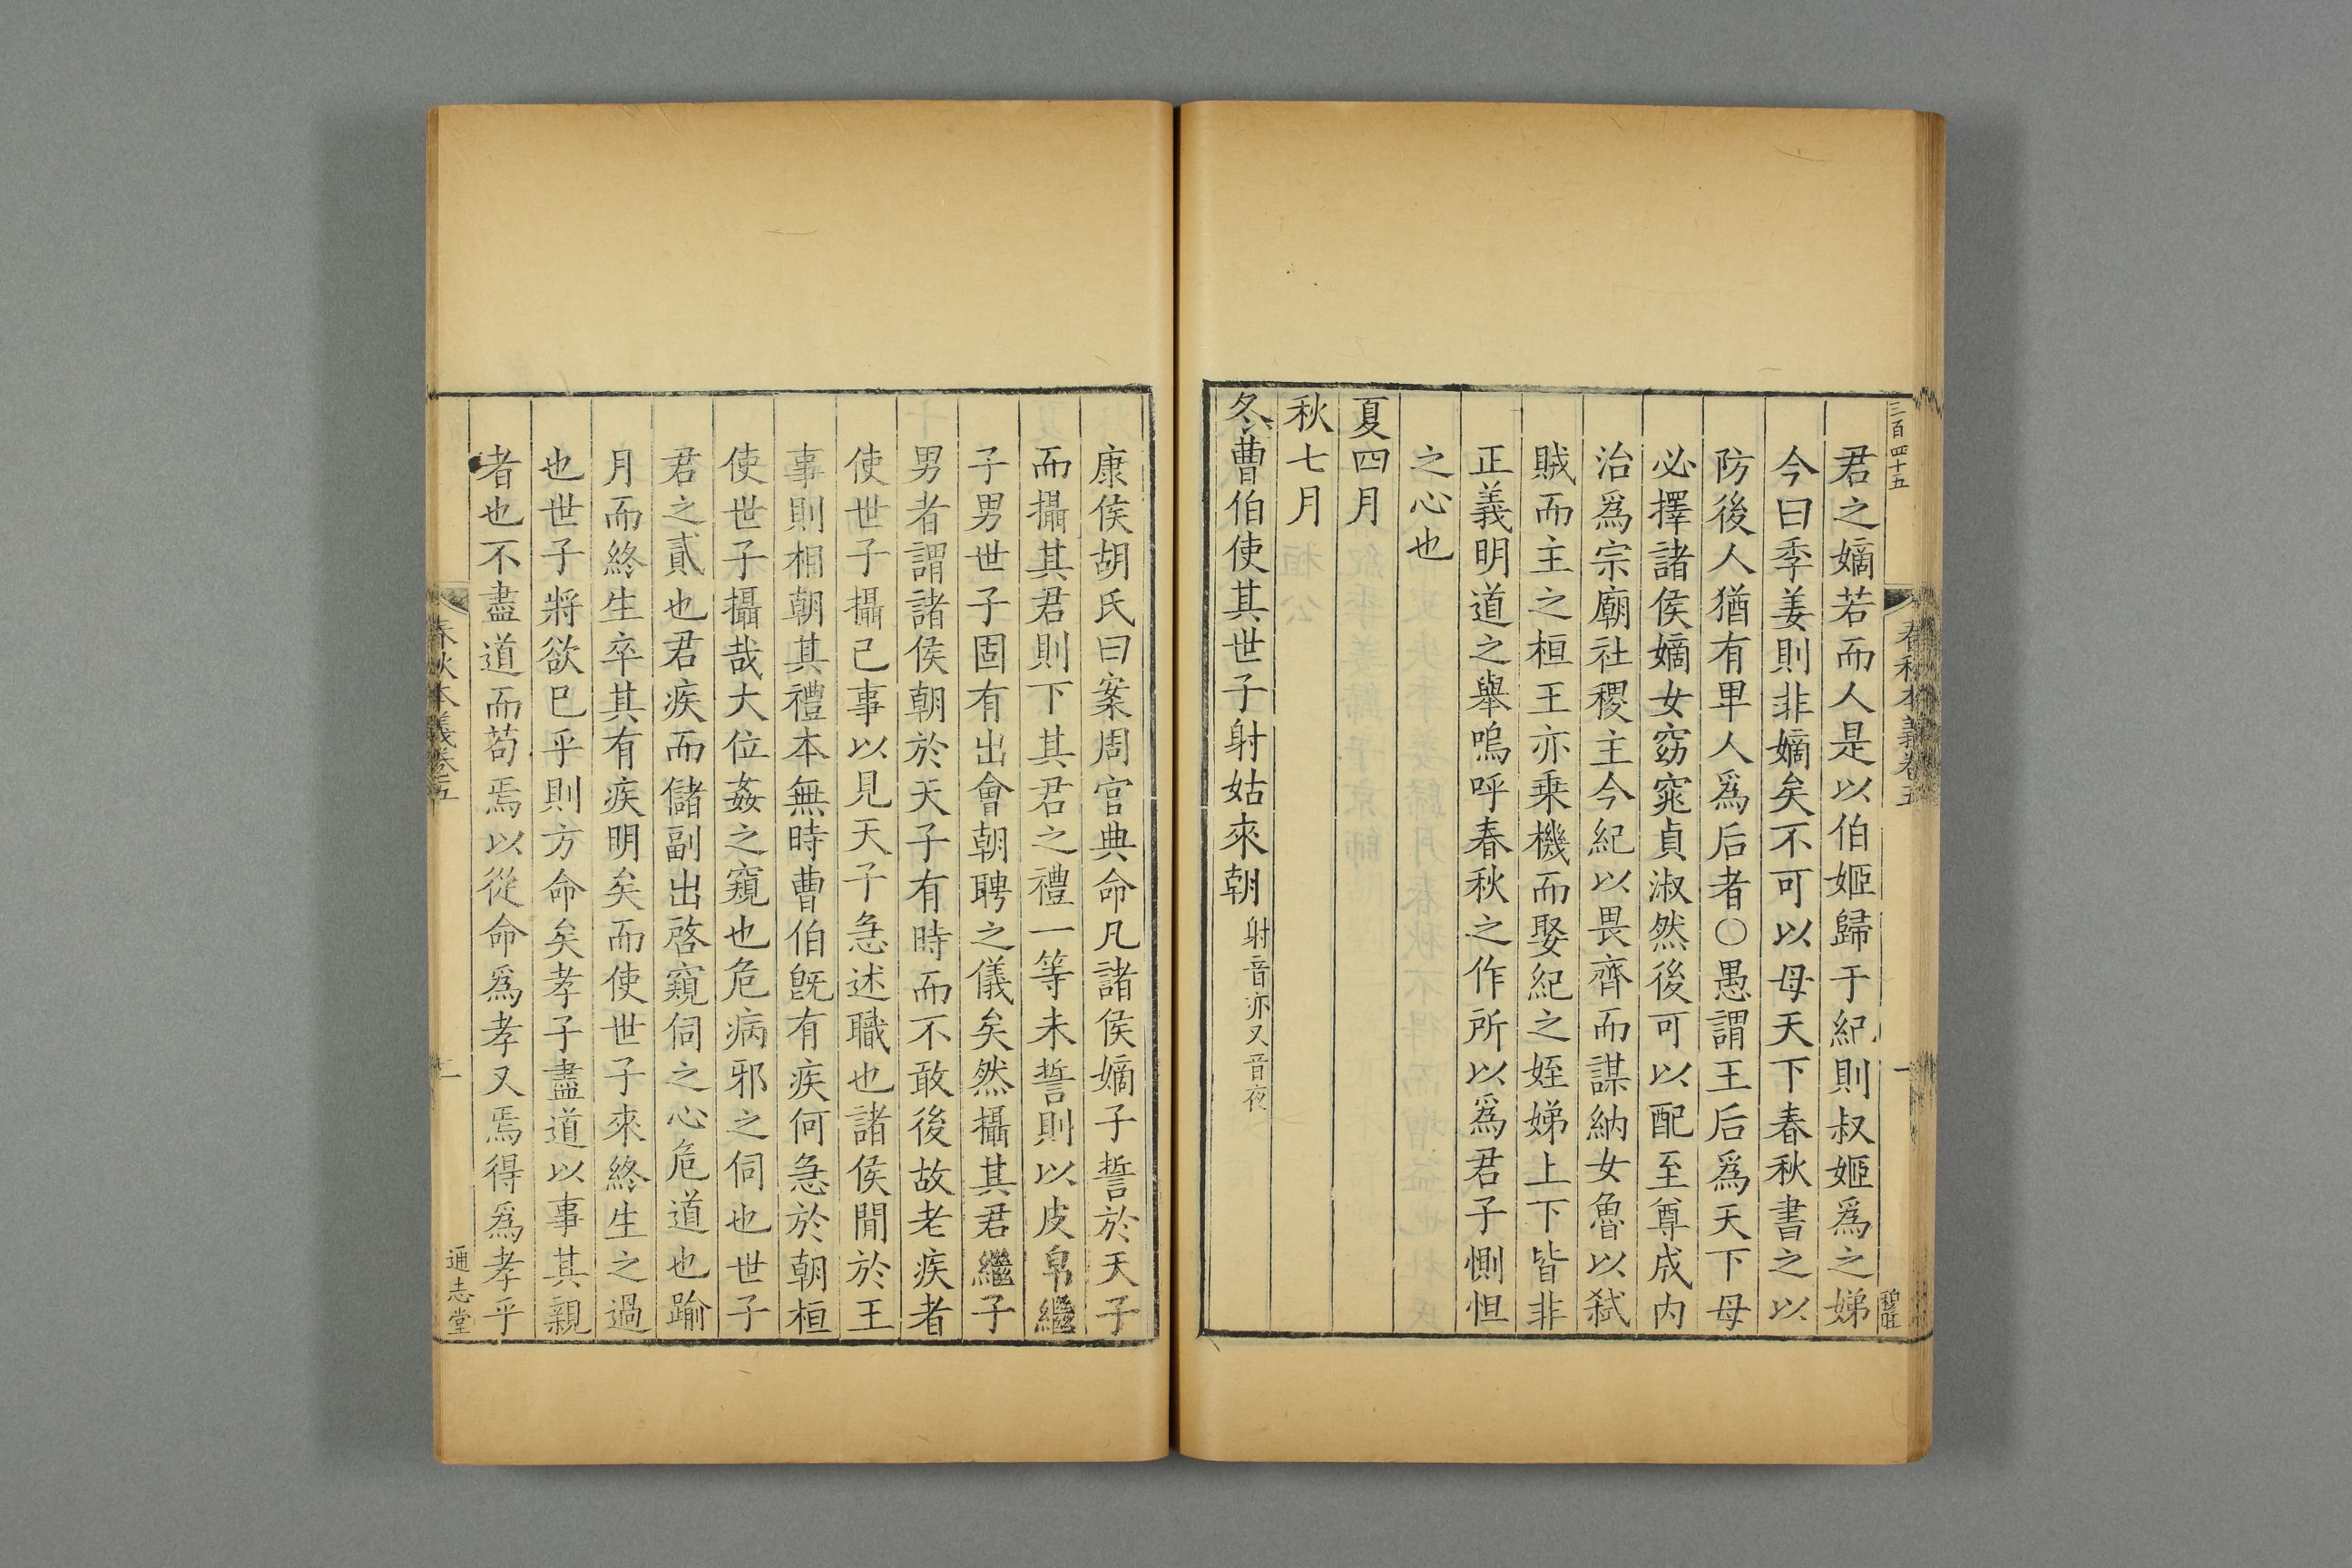 三百四十五
春秋本義卷五
一
君之嫡若而人是以伯姬歸于紀則叔姬爲之娣
今曰季姜則非嫡矣不可以母天下春秋書之以
防後人猶有卑人爲后者○愚謂王后爲天下母
必擇諸侯嫡女窈窕貞淑然後可以配至尊成内
治爲宗廟社稷主今紀以畏齊而謀納女魯以弑
賊而主之桓王亦乗機而娶紀之姪娣上下皆非
正義明道之舉嗚呼春秋之作所以爲君子惻怛
之心也
夏四月
秋七月
冬曹伯使其世子射姑來朝射音亦又音夜
康侯胡氏曰案周官典命凡諸侯嫡子誓於天子
而攝其君則下其君之禮一等未誓則以皮帛繼
子男世子固有出會朝聘之儀矣然攝其君繼子
男者謂諸侯朝於天子有時而不敢後故老疾者
使世子攝已事以見天子急述職也諸侯閒於王
事則相朝其禮本無時曹伯旣有疾何急於朝桓
使世子攝哉大位姦之窺也危病邪之伺也世子
君之貳也君疾而儲副出啓窺伺之心危道也踰
月而終生卒其有疾明矣而使世子來終生之過
也世子將欲巳乎則方命矣孝子盡道以事其親
者也不盡道而苟焉以從命爲孝又焉得爲孝乎
春秋本義卷五
二
通志堂